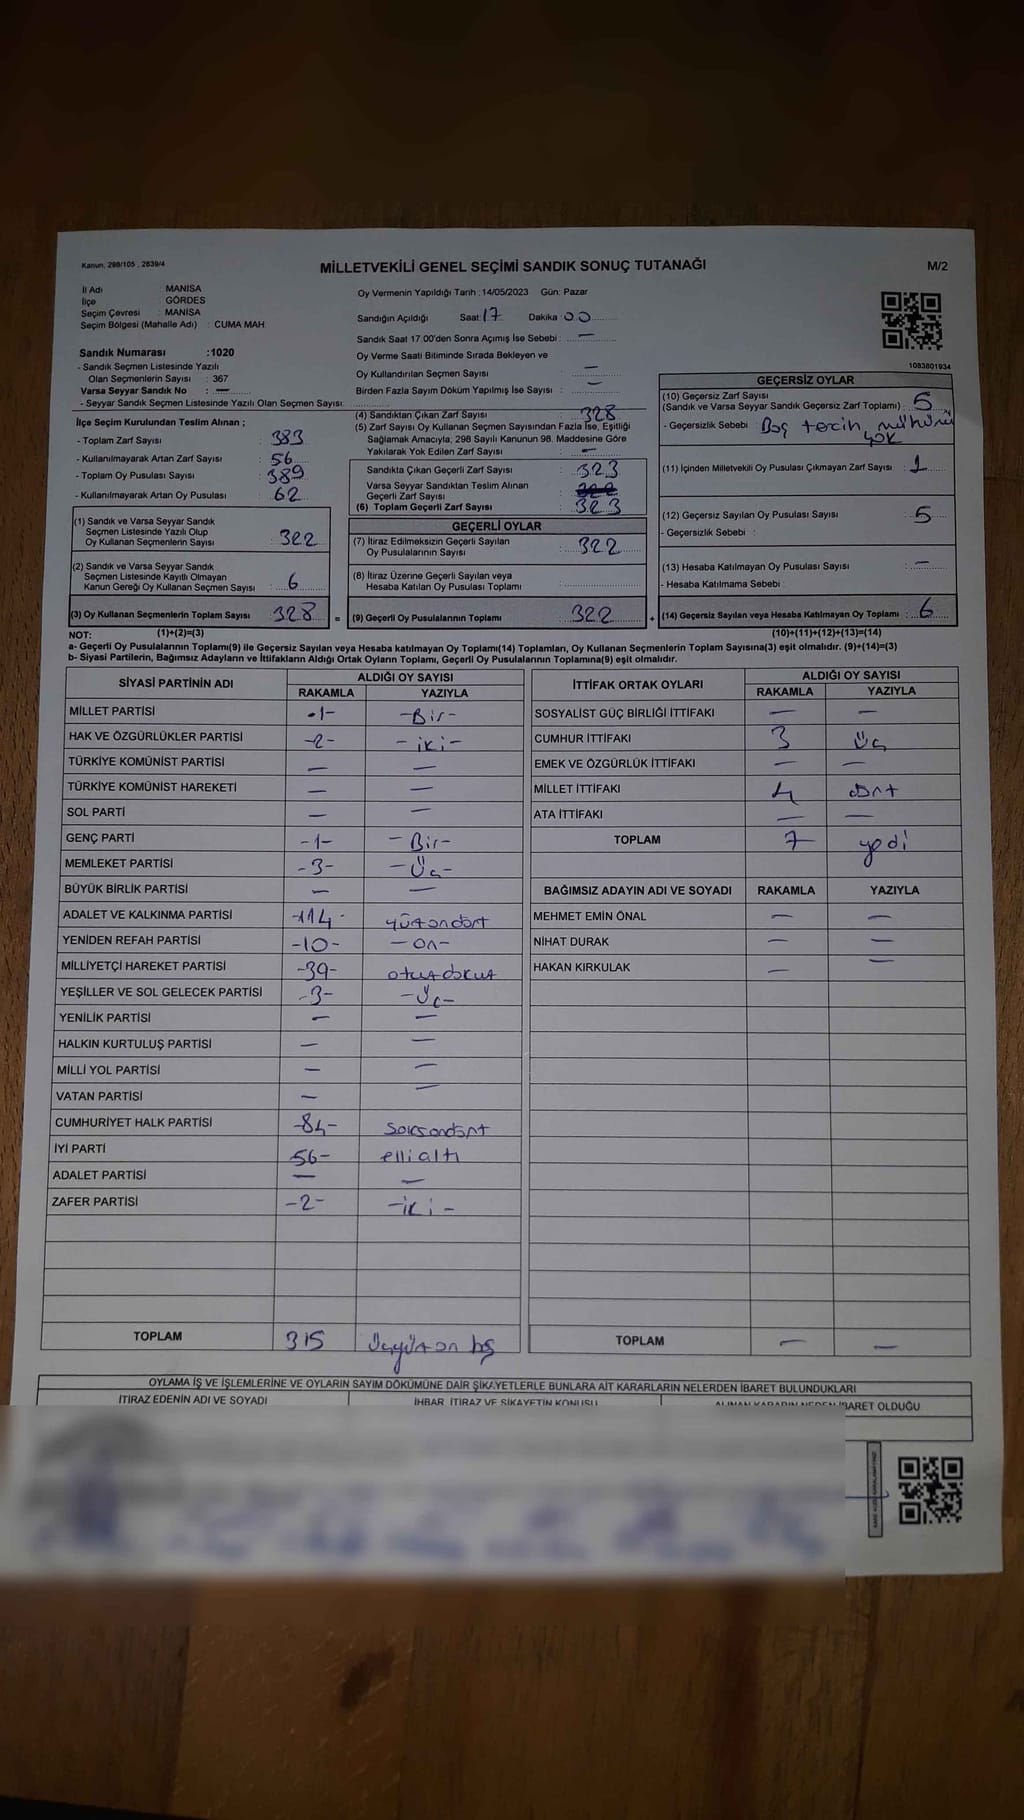 Kanun, 298/105 , 2839/4
MİLLETVEKİLİ GENEL SEÇİMİ SANDIK SONUÇ TUTANAĞI
M/2
İl Adı : MANİSA
İlçe : GÖRDES
Seçim Çevresi : MANİSA
Seçim Bölgesi (Mahalle Adı) : CUMA MAH.
Sandık Numarası :1020
- Sandık Seçmen Listesinde Yazılı
Olan Seçmenlerin Sayısı : 367
Varsa Seyyar Sandık No : —
- Seyyar Sandık Seçmen Listesinde Yazılı Olan Seçmen Sayısı:
İlçe Seçim Kurulundan Teslim Alınan ;
- Toplam Zarf Sayısı : 383
- Kullanılmayarak Artan Zarf Sayısı : 56
- Toplam Oy Pusulası Sayısı : 389
- Kullanılmayarak Artan Oy Pusulası : 62
(1) Sandık ve Varsa Seyyar Sandık
Seçmen Listesinde Yazılı Olup
Oy Kullanan Seçmenlerin Sayısı : 322
(2) Sandık ve Varsa Seyyar Sandık
Seçmen Listesinde Kayıtlı Olmayan
Kanun Gereği Oy Kullanan Seçmen Sayısı : 6
(3) Oy Kullanan Seçmenlerin Toplam Sayısı : 328
Oy Vermenin Yapıldığı Tarih :14/05/2023 Gün: Pazar
Sandığın Açıldığı Saat:17 Dakika :00
Sandık Saat 17.00'den Sonra Açımış İse Sebebi : —
Oy Verme Saati Bitiminde Sırada Bekleyen ve
Oy Kullandırılan Seçmen Sayısı : —
Birden Fazla Sayım Döküm Yapılmış İse Sayısı : —
(4) Sandıktan Çıkan Zarf Sayısı : 328
(5) Zarf Sayısı Oy Kullanan Seçmen Sayısından Fazla İse, Eşitliği
Sağlamak Amacıyla, 298 Sayılı Kanunun 98. Maddesine Göre
Yakılarak Yok Edilen Zarf Sayısı : —
Sandıkta Çıkan Geçerli Zarf Sayısı : 323
Varsa Seyyar Sandıktan Teslim Alınan
Geçerli Zarf Sayısı :
(6) Toplam Geçerli Zarf Sayısı : 323
GEÇERLİ OYLAR
(7) İtiraz Edilmeksizin Geçerli Sayılan
Oy Pusulalarının Sayısı : 322
(8) İtiraz Üzerine Geçerli Sayılan veya
Hesaba Katılan Oy Pusulası Toplamı :
= (9) Geçerli Oy Pusulalarının Toplamı : 322 +
1083801934
GEÇERSİZ OYLAR
(10) Geçersiz Zarf Sayısı
(Sandık ve Varsa Seyyar Sandık Geçersiz Zarf Toplamı) : 5
- Geçersizlik Sebebi : Boş tercih mührü
yok
(11) İçinden Milletvekili Oy Pusulası Çıkmayan Zarf Sayısı : 1
(12) Geçersiz Sayılan Oy Pusulası Sayısı : 5
- Geçersizlik Sebebi :
(13) Hesaba Katılmayan Oy Pusulası Sayısı : —
- Hesaba Katılmama Sebebi :
(14) Geçersiz Sayılan veya Hesaba Katılmayan Oy Toplamı : 6
NOT: (1)+(2)=(3) (10)+(11)+(12)+(13)=(14)
a- Geçerli Oy Pusulalarının Toplamı(9) ile Geçersiz Sayılan veya Hesaba katılmayan Oy Toplamı(14) Toplamları, Oy Kullanan Seçmenlerin Toplam Sayısına(3) eşit olmalıdır. (9)+(14)=(3)
b- Siyasi Partilerin, Bağımsız Adayların ve İttifakların Aldığı Ortak Oyların Toplamı, Geçerli Oy Pusulalarının Toplamına(9) eşit olmalıdır.
SİYASİ PARTİNİN ADI ALDIĞI OY SAYISI
RAKAMLA YAZIYLA
MİLLET PARTİSİ -1- -Bir-
HAK VE ÖZGÜRLÜKLER PARTİSİ -2- -iki-
TÜRKİYE KOMÜNİST PARTİSİ — —
TÜRKİYE KOMÜNİST HAREKETİ — —
SOL PARTİ — —
GENÇ PARTİ -1- -Bir-
MEMLEKET PARTİSİ -3- -Üç-
BÜYÜK BİRLİK PARTİSİ — —
ADALET VE KALKINMA PARTİSİ -114- yüzondört
YENİDEN REFAH PARTİSİ -10- -on-
MİLLİYETÇİ HAREKET PARTİSİ -39- otuzdokuz
YEŞİLLER VE SOL GELECEK PARTİSİ -3- -Üç-
YENİLİK PARTİSİ — —
HALKIN KURTULUŞ PARTİSİ — —
MİLLİ YOL PARTİSİ — —
VATAN PARTİSİ — —
CUMHURİYET HALK PARTİSİ -84- seksendört
İYİ PARTİ 56- ellialtı
ADALET PARTİSİ — —
ZAFER PARTİSİ -2- -iki-
TOPLAM 315 üçyüzon beş
İTTİFAK ORTAK OYLARI ALDIĞI OY SAYISI
RAKAMLA YAZIYLA
SOSYALİST GÜÇ BİRLİĞİ İTTİFAKI — —
CUMHUR İTTİFAKI 3 Üç
EMEK VE ÖZGÜRLÜK İTTİFAKI — —
MİLLET İTTİFAKI 4 dört
ATA İTTİFAKI — —
TOPLAM 7 yedi
BAĞIMSIZ ADAYIN ADI VE SOYADI RAKAMLA YAZIYLA
MEHMET EMİN ÖNAL — —
NİHAT DURAK — —
HAKAN KIRKULAK — —
TOPLAM — —
OYLAMA İŞ VE İŞLEMLERİNE VE OYLARIN SAYIM DÖKÜMÜNE DAİR ŞİKAYETLERLE BUNLARA AİT KARARLARIN NELERDEN İBARET BULUNDUKLARI
İTİRAZ EDENİN ADI VE SOYADI İHBAR, İTİRAZ VE ŞİKAYETİN KONUSU ALINAN KARARIN NEDEN İBARET OLDUĞU